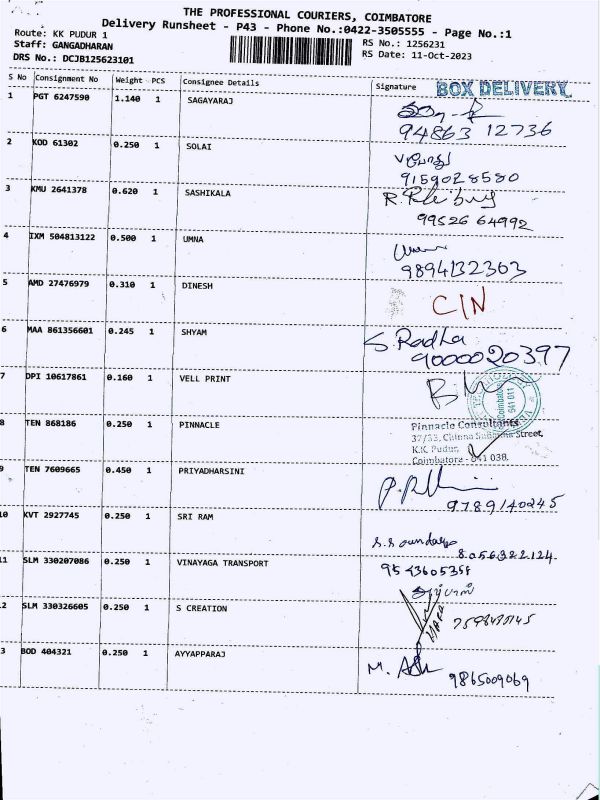 THE PROFESSIONAL COURIERS, COIMBATORE
Delivery Runsheet - P43 - Phone No.:0422-3505555 - Page No.:1
Route: KK PUDUR 1
Staff: GANGADHARAN
DRS No.: DCJB125623101
RS No.: 1256231
RS Date: 11-Oct-2023
S No Consignment No Weight PCS Consignee Details Signature
BOX DELIVERY
1 PGT 6247590 1.140 1 SAGAYARAJ
94863 12736
2 KOD 61302 0.250 1 SOLAI
9159028580
3 KMU 2641378 0.620 1 SASHIKALA
99526 64992
4 IXM 504813122 0.500 1 UMNA
9894132363
5 AMD 27476979 0.310 1 DINESH
CIN
6 MAA 861356601 0.245 1 SHYAM
S. Radha
9000020397
7 DPI 10617861 0.160 1 VELL PRINT
Coimbatore
641 011
8 TEN 868186 0.250 1 PINNACLE
Pinnacle Consultants
37/33, Chinna Subanna Street,
K.K. Pudur,
Coimbatore - 641 038.
9 TEN 7609665 0.450 1 PRIYADHARSINI
9789140245
10 KVT 2927745 0.250 1 SRI RAM
8056322124
11 SLM 330207086 0.250 1 VINAYAGA TRANSPORT
9543605358
12 SLM 330326605 0.250 1 S CREATION
13 BOD 404321 0.250 1 AYYAPPARAJ
9865009069